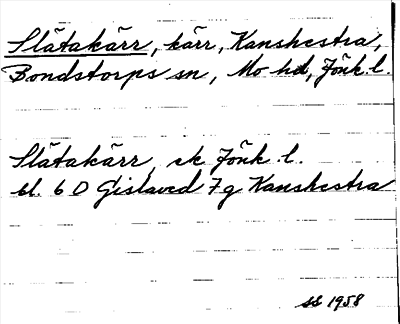 Slätakärr, kärr, Kanshestra,
Bondstorps sn, Mo hd, Jönk. l.
Slätakärr, ek Jönk. l.
bl. 6 D Gislaved 7 g Kanshestra
SE 1958